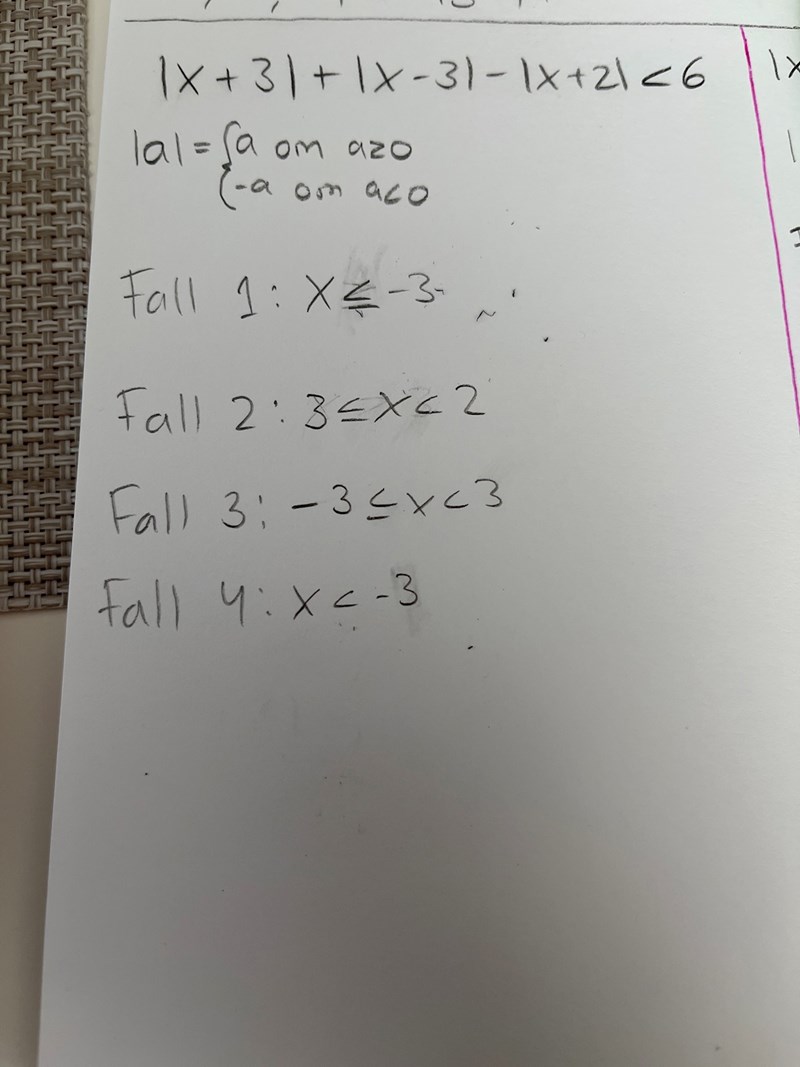 |x+3|+|x-3|-|x+2|<6
|a|={a om a≥0
{-a om a<0
Fall 1: x≤-3
Fall 2: 3≤x<2
Fall 3: -3≤x<3
Fall 4: x<-3
|x